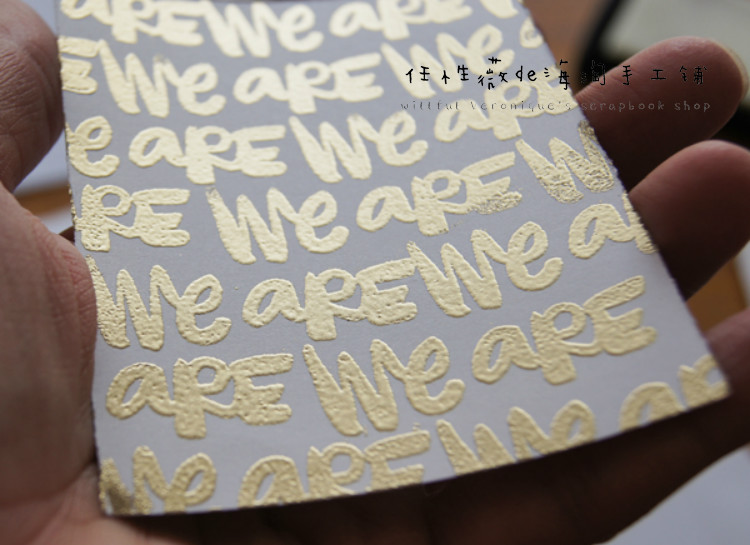 We aRE We aRE We
E We aRE We
e aRE We aRE
RE We aRE W
We aRE We a
aRE We aRE
We aRE We a
任性薇de海 手工铺
willful Veronique's scrapbook shop